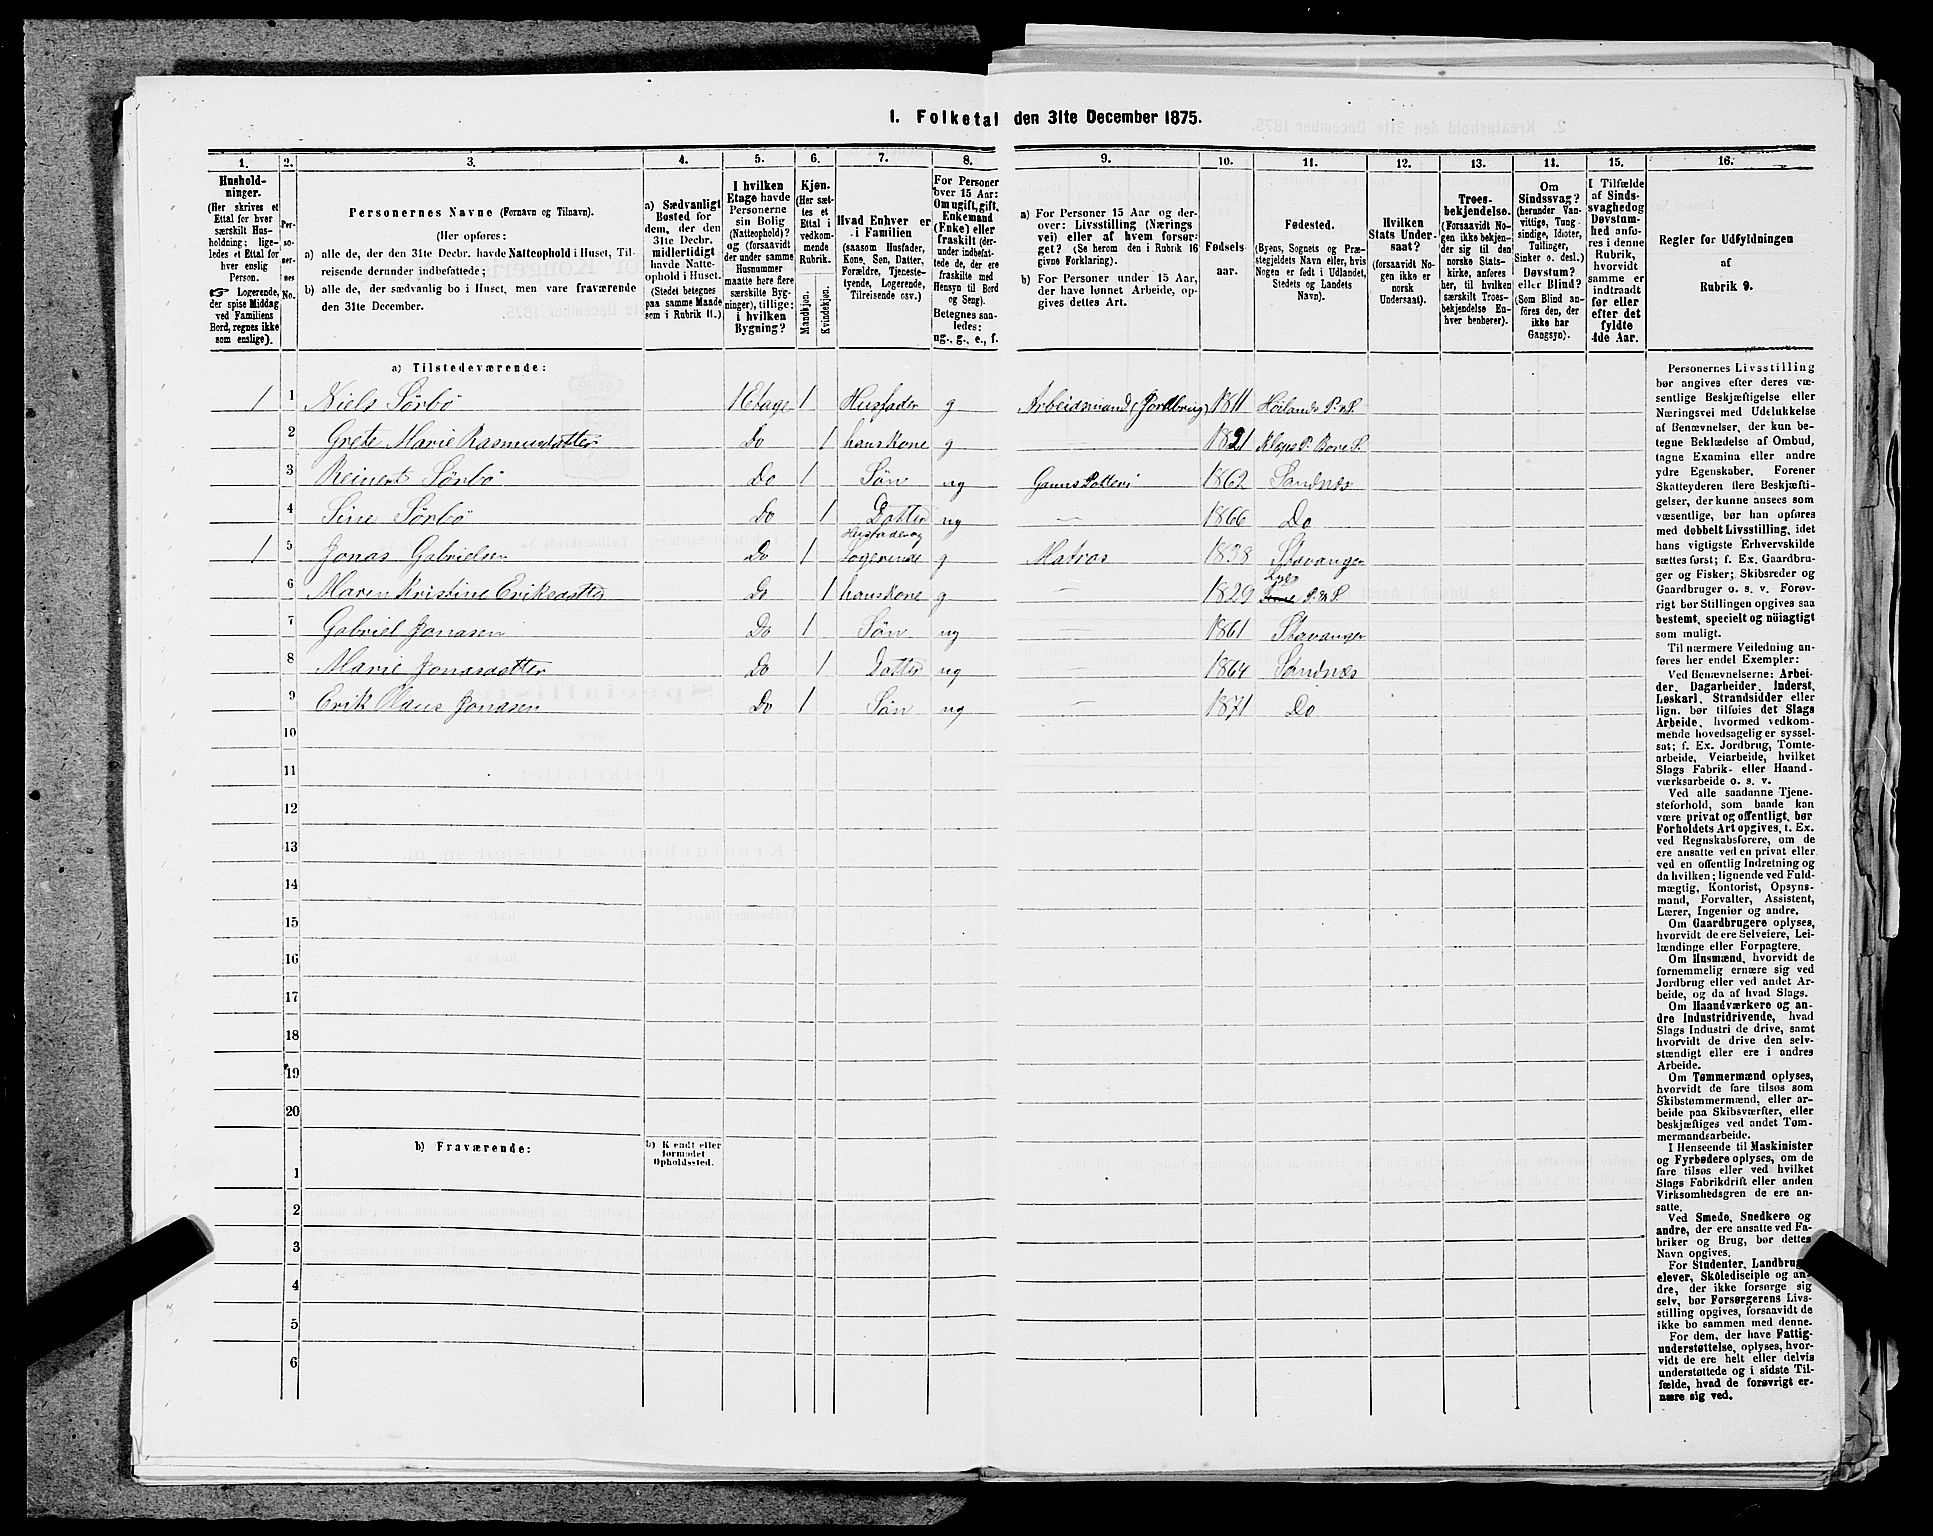 1. Folketal den 31te December 1875.
1. 2. 3. 4. 5. 6. 7. 8. 9. 10. 11. 12. 13. 14. 15. 16.
Hushold-
ninger.
(Her skrives et
Ettal for hver
særskilt Hus-
holdning; lige-
ledes et Ettal for
hver enslig
Person.
Logerende,
der spise Middag
ved Familiens
Bord, regnes ikke
som enslige).
Per-
so-
ner-
nes
No.
Personernes Navne (Fornavn og Tilnavn).
(Her opføres:
a) alle de, der den 31te Decbr. havde Natteophold i Huset, Til-
reisende derunder indbefattede;
b) alle de, der sædvanlig bo i Huset, men vare fraværende
den 31te December.
a) Sædvanligt
Bosted for
dem, der den
31te Decbr.
midlertidigt
havde Natte-
ophold i Huset.
(Stedet betegnes
paa samme Maade
som i Rubrik 11.)
I hvilken
Etage havde
Personerne
sin Bolig
(Natteophold)?
og (forsaavidt
der under samme
Husnummer
maatte høre flere
særskilte Byg-
ninger), tillige:
i hvilken
Bygning?
Kjøn.
(Her sæt-
tes et
Ettal i
vedkom-
mende
Rubrik.
Mandkjøn.
Kvindekjøn.
Hvad Enhver er
i Familien
(saasom Husfader,
Kone, Søn, Datter,
Forældre, Tjeneste-
tyende, Logerende,
Tilreisende osv.)
For Personer
over 15 Aar:
Om ugift, gift,
Enkemand
(Enke) eller
fraskilt (der-
under indbefat-
tede de, der ere
fraskilte med
Hensyn til Bord
og Seng)
Betegnes saa-
ledes:
ug., g., e., f.
a) For Personer 15 Aar og der-
over: Livsstilling (Nærings
vei) eller af hvem forsør-
get? (Se herom den i Rubrik 16
givne Forklaring).
b) For Personer under 15 Aar,
der have lønnet Arbeide, op-
gives dettes Art.
Fødsels
aar.
Fødested.
(Byens, Sognets og Præ-
stegjeldets Navn eller, hvis
Nogen er født i Udlandet,
Stedets og Landets
Navn).
Hvilken
Stats Under-
saat?
(forsaavidt No-
gen ikke er
norsk
Undersaat).
Troes-
bekjendelse.
(Forsaavidt No-
gen ikke bekjen-
der sig til den
norske Stats-
kirke, anføres
her, til hvilken
særskilt Troes-
bekjendelse En-
hver henhører).
Om
Sindssvag?
(herunder Van-
vittige, Tung-
sindige, Idioter,
Tullinger,
Sinker o. desl.)
Døvstum?
eller Blind?
(Som Blind an-
føres den, der
ikke har
Gangsyn).
I Tilfælde
af Sinds-
svaghed og
Døvstum-
hed anfø-
res i denne
Rubrik,
hvorvidt
samme er
indtraadt
før eller
efter det
fyldte
4de Aar.
Regler for Udfyldningen
af
Rubrik 9.
a) Tilstedeværende:
1 1 Niels Sørbø 1 Etage 1 Husfader g Arbeidsmand (Jordbrug) 1811 Høilands P. & S.
2 Grete Marie Rasmusdatter Do 1 hans Kone g 1821 Kleps P. Bore S.
3 Reinert Sørbø Do 1 Søn ug Ganns Potteri 1862 Sandnæs
4 Sine Sørbø Do 1 Datter ug — 1866 Do
1 5 Jonas Gabrielsen Do 1 Husfader og Logerende g Matros 1838 Stavanger
6 Maren Kristine Eriksdatter Do 1 hans Kone g — 1829 P. & S.
7 Gabriel Jonasen Do 1 Søn ug — 1861 Stavanger
8 Marie Jonasdatter Do 1 Datter ug — 1864 Sandnæs
9 Erik Olaus Jonasen Do 1 Søn ug — 1871 Do
10
11
12
13
14
15
16
17
18
19
20
b) Fraværende:
b) Kjendt eller
formodet
Opholdssted.
1
2
3
4
5
6
Personernes Livsstilling
bør angives efter deres væ-
sentlige Beskjæftigelse eller
Næringsvei med Udelukkelse
af Benævnelser, der kun be-
tegne Beklædelse af Ombud,
tagne Examina eller andre
ydre Egenskaber. Forener
Skatteyderen flere Beskjæfti-
gelser, der kunne ansees som
væsentlige, bør han opføres
med dobbelt Livsstilling, idet
hans vigtigste Erhvervskilde
sættes først; f. Ex. Gaardbru-
ger og Fisker; Skibsreder og
Gaardbruger o. s. v. Forøv-
rigt bør Stillingen opgives saa
bestemt, specielt og nöiagtigt
som muligt.
Til nærmere Veiledning an-
føres her endel Exempler:
Ved Benævnelserne: Arbei-
der, Dagarbeider, Inderst,
Løskarl, Strandsidder eller
lign. bør tilføies det Slags
Arbeide, hvormed vedkom-
mende hovedsagelig er syssel-
sat; f. Ex. Jordbrug, Tomte-
arbeide, Veiarbeide, hvilket
Slags Fabrik- eller Haand-
værksarbeide o. s. v.
Ved alle saadanne Tjene-
steforhold, som baade kan
være privat og offentligt, bør
Forholdets Art opgives, t. Ex.
ved Regnskabsførere, om de
ere ansatte ved en privat eller
ved en offentlig Indretning og
da hvilken; lignende ved Fuld-
mægtig, Kontorist, Opsyns-
mand, Forvalter, Assistent,
Lærer, Ingeniør og andre.
Om Gaardbrugere oplyses,
hvorvidt de ere Selveiere, Lei-
lændinge eller Forpagtere.
Om Husmænd, hvorvidt de
fornemmelig ernære sig ved
Jordbrug eller ved andet Ar-
beide, og da af hvad Slags.
Om Haandværkere og an-
dre Industridrivende, hvad
Slags Industri de drive, samt
hvorvidt de drive den selv-
stændigt eller ere i andres
Arbeide.
Om Tømmermænd oplyses,
hvorvidt de fare tilsøs som
Skibstømmermænd, eller ar-
beide paa Skibsværfter, eller
beskjæftiges ved andet Tøm-
mermandsarbeide.
I Henseende til Maskinister
og Fyrbødere oplyses, om de
fare tilsøs eller ved hvilket
Slags Fabrikdrift eller anden
Virksomhedsgren de ere an-
satte.
Ved Smede, Snedkere og
andre, der ere ansatte ved Fa-
briker og Brug, bør dettes
Navn opgives.
For Studenter, Landbrugs-
elever, Skoledisciple og an-
dre, der ikke forsørge sig
selv, bør Forsørgerens Livs-
stilling opgives, forsaavidt de
ikke bo sammen med denne.
For dem, der have Fattig-
understøttelse, oplyses, hvor-
vidt de ere helt eller delvis
understøttede og i sidste Til-
fælde, hvad de forøvrigt er-
nære sig ved.